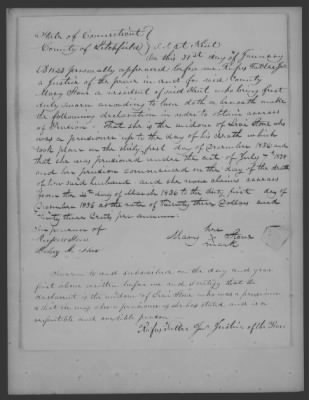 State of Connecticut (
County of Litchfield ) S.S. at Kent
On this 31st day of January
personally appeared before me Rufus Fuller
a Justice of the peace in and for said County
Mary Stone a resident of said Kent who being first
duly sworn according to law doth on her oath make
the following declaration in order to obtain arrears
of Pension. That she is the widow of Stone who
was a pensioner up to the day of his death which
took place on the thirty first day of December 1896 and
that she was pensioned under the act of July 7th
and her pension commenced on the day of the death
of her said husband and she now claims arrears
from the 4th day of March 1836 to the thirty first day of
December 1896 at the rate of twenty three Dollars and
thirty three Cents per annum.
In presence of her
Stone Mary X Stone
mark
Sworn to and subscribed on the day and year
first above written before me and I certify that the
declarant is the widow of Stone who was a pensioner
that she may obtain pension as she has stated and is a
respectable and credible person
Rufus Fuller Justice of the Peace